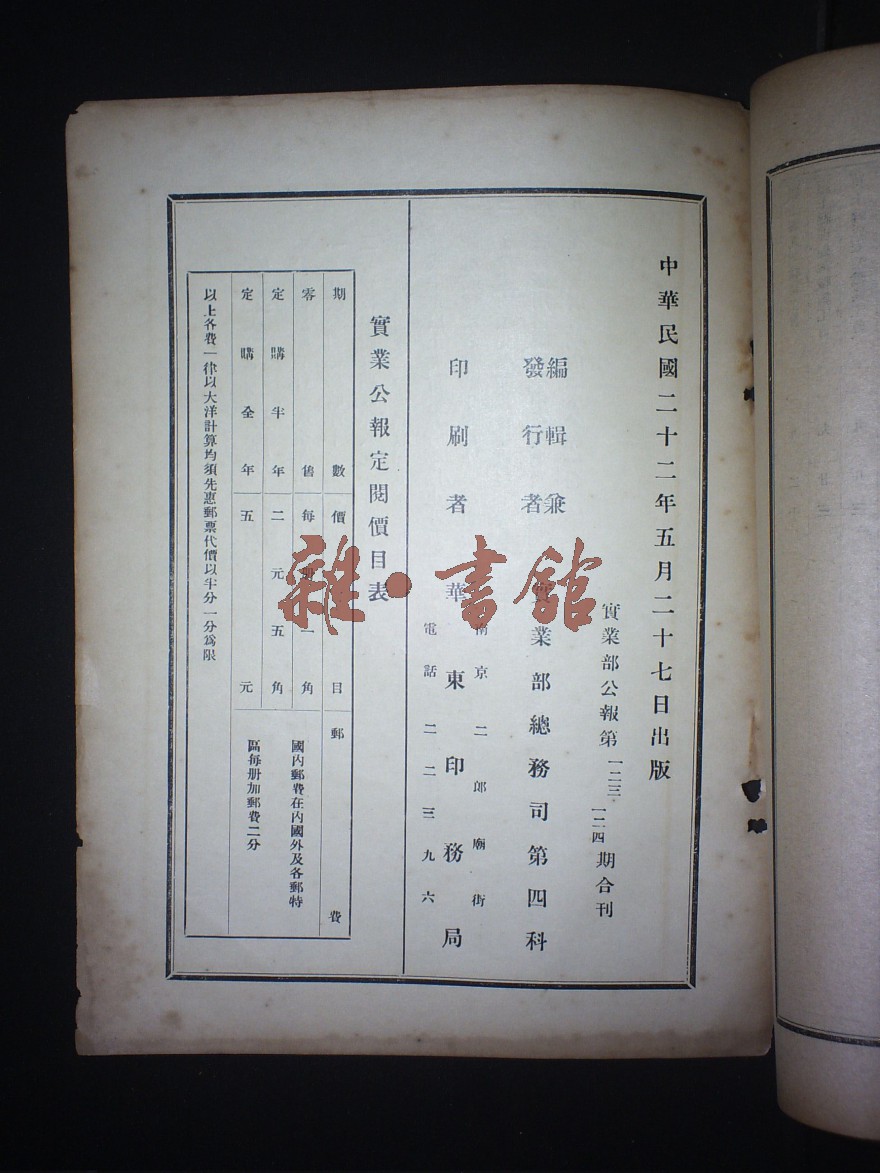 中華民國二十二年五月二十七日出版
實業部公報第一二三 一二四期合刊
編輯兼
發行者
業部總務司第四科
印刷者
華東印務局
南京二郎廟街
電話二二三九六
實業公報定閱價目表
期數 價目 郵費
零售 每 一角
定購半年 二元五角
定購全年 五元
國內郵費在內國外及各郵特
區每册加郵費二分
以上各費一律以大洋計算均須先惠郵票代價以半分一分爲限
雜·書館